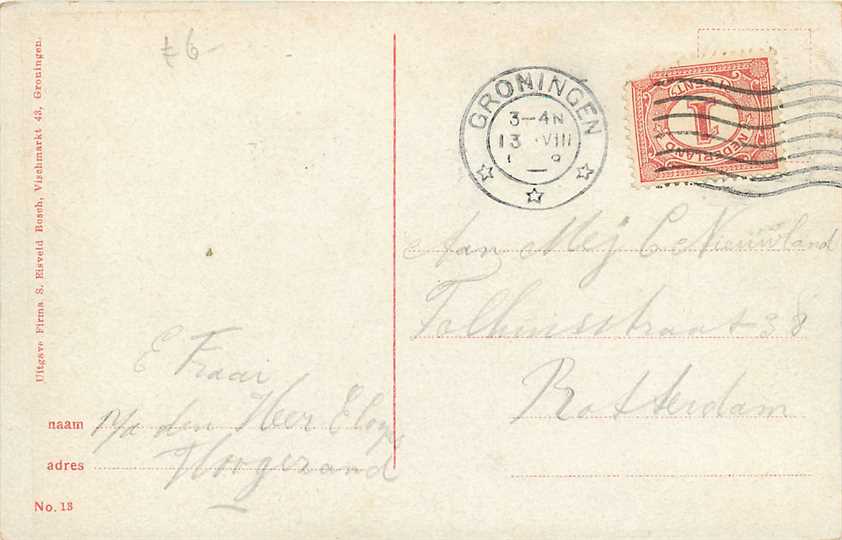 £6-
GRONINGEN
3-4N
13 VIII
1 9
1 CENT
NEDERLAND
Uitgave Firma S. Eisveld Bosch, Vischmarkt 43, Groningen.
Aan Mej C Nieuwland
Tolhuisstraat 38
Rotterdam
E Fraai
naam p/a den Heer E
adres Hoogezand
No. 13